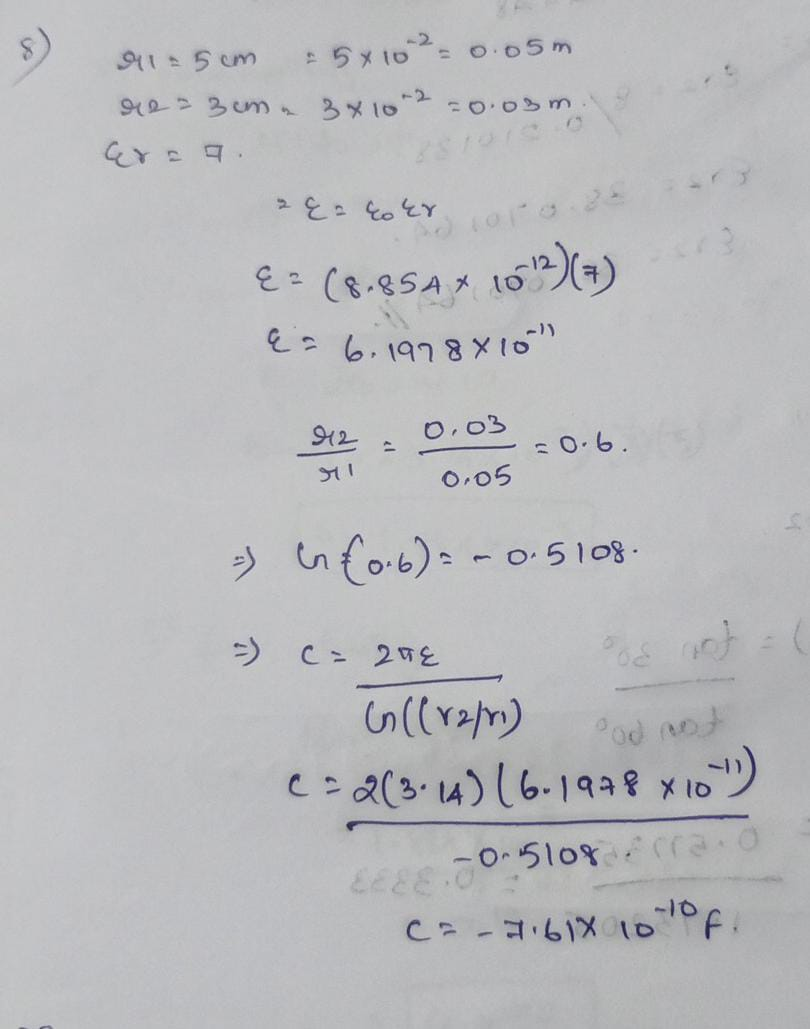 8) r1 = 5 cm = 5 × 10⁻² = 0.05 m
r2 = 3 cm = 3 × 10⁻² = 0.03 m.
εr = 7.
= ε = ε0 εr
ε = (8.854 × 10⁻¹²)(7)
ε = 6.1978 × 10⁻¹¹
r2/r1 = 0.03/0.05 = 0.6.
=> ln(0.6) = - 0.5108.
=> C = 2πε
ln((r2/r1)
C = 2(3.14)(6.1978 × 10⁻¹¹)
-0.5108
C = - 7.61 × 10⁻¹⁰ F.